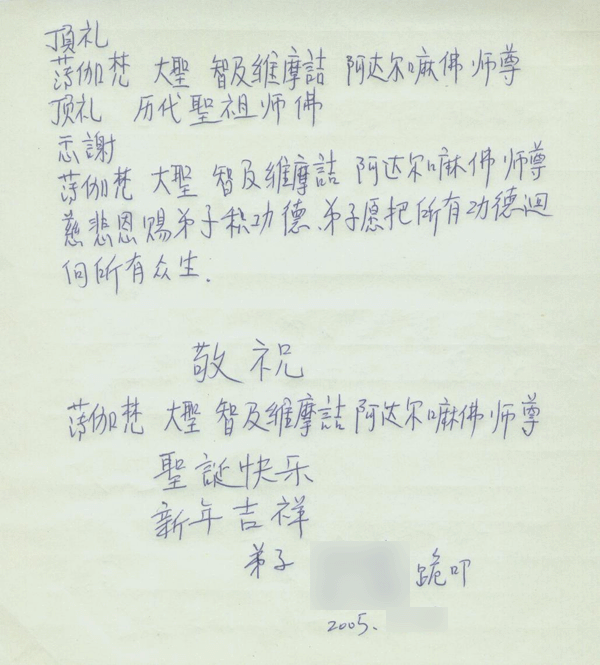 頂礼
薄伽梵 大聖 智及維摩詰 阿达尔嘛佛师尊
顶礼 历代聖祖师佛
忝謝
薄伽梵 大聖 智及維摩詰 阿达尔嘛佛师尊
慈悲恩赐弟子积功德、弟子愿把所有功德迴
向所有众生.
敬祝
薄伽梵 大聖 智及維摩詰阿达尔嘛佛师尊
聖誕快乐
新年吉祥
弟子 跪叩
2005.